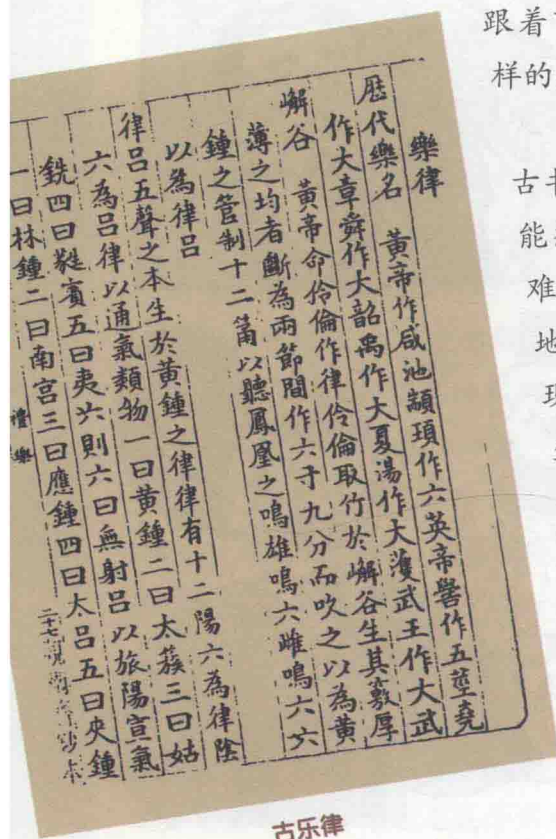 跟着
样的
古
能
难
地
现
樂律
歷代樂名 黃帝作咸池顓頊作六英帝嚳作五莖堯
作大章舜作大韶禹作大夏湯作大濩武王作大武
嶰谷 黃帝命伶倫作律伶倫取竹於嶰谷生其竅厚
薄之均者斷為兩節間作六寸九分而吹之以為黃
鍾之管制十二筩以聽鳳凰之鳴雄鳴六雌鳴六六
以為律呂
律呂五聲之本生於黃鍾之律律有十二陽六為律陰
六為呂律以通氣類物一曰黃鍾二曰太簇三曰姑
銑四曰蕤賓五曰夷六則六曰無射呂以旅陽宣氣
一曰林鍾二曰南宮三曰應鍾四曰太呂五曰夾鍾
禮樂
二十七
古乐律